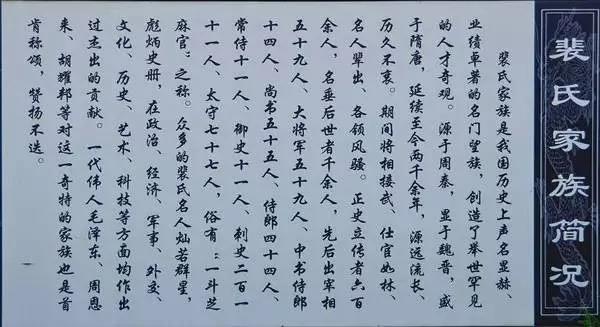 裴氏家族简况
裴氏家族是我国历史上声名显赫、
业绩卓著的名门望族，创造了举世罕见
的人才奇观。源于周秦，显于魏晋，盛
于隋唐，延续至今两千余年，源远流长、
历久不衰。期间将相接武、仕官如林、
名人辈出、各领风骚。正史立传者六百
余人，名垂后世者千余人，先后出宰相
五十九人、大将军五十九人、中书侍郎
十四人、尚书五十五人、侍郎四十四人、
常侍十一人、御史十一人、刺史二百一
十一人、太守七十七人，俗有：“一斗芝
麻官”之称。众多的裴氏名人灿若群星，
彪炳史册，在政治、经济、军事、外交、
文化、历史、艺术、科技等方面均作出
过杰出的贡献。一代伟人毛泽东、周恩
来、胡耀邦等对这一奇特的家族也是首
肯称颂，赞扬不迭。